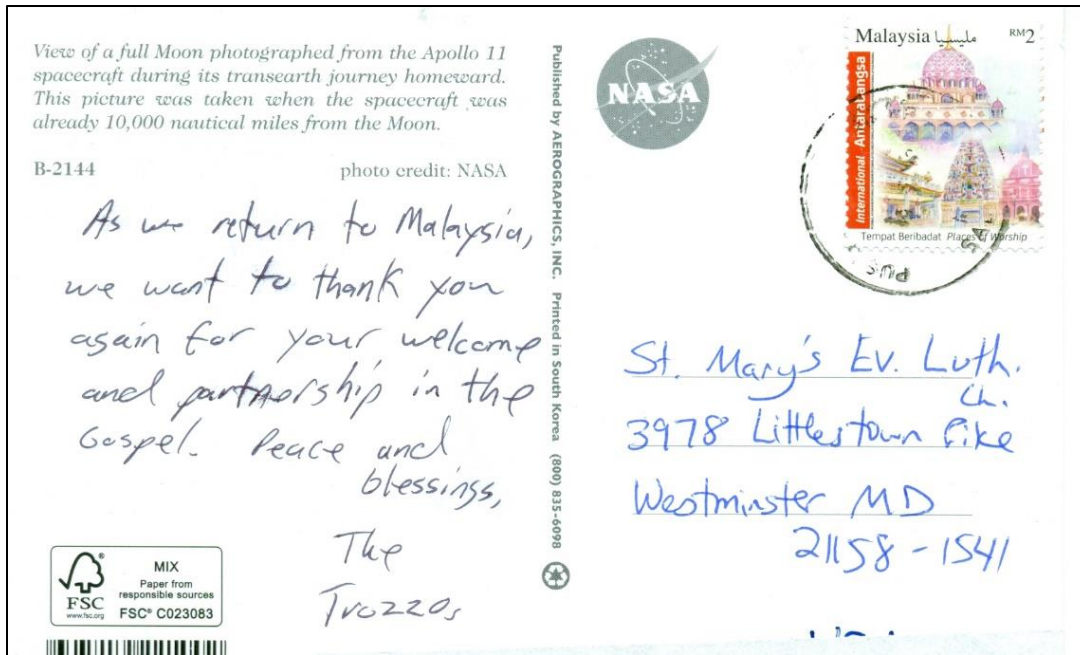 View of a full Moon photographed from the Apollo 11
spacecraft during its transearth journey homeward.
This picture was taken when the spacecraft was
already 10,000 nautical miles from the Moon.
B-2144
photo credit: NASA
As we return to Malaysia,
we want to thank you
again for your welcome
and partnership in the
Gospel. Peace and
blessings,
The
Trozzos
MIX
Paper from
responsible sources
FSC® C023083
FSC
www.fsc.org
Published by AEROGRAPHICS, INC. Printed in South Korea (800) 835-6098
NASA
Malaysia مليسيا RM2
International Antarabangsa
Tempat Beribadat Places of Worship
PUS
St. Mary's Ev. Luth.
Ch.
3978 Littlestown Pike
Westminster MD
21158-1541